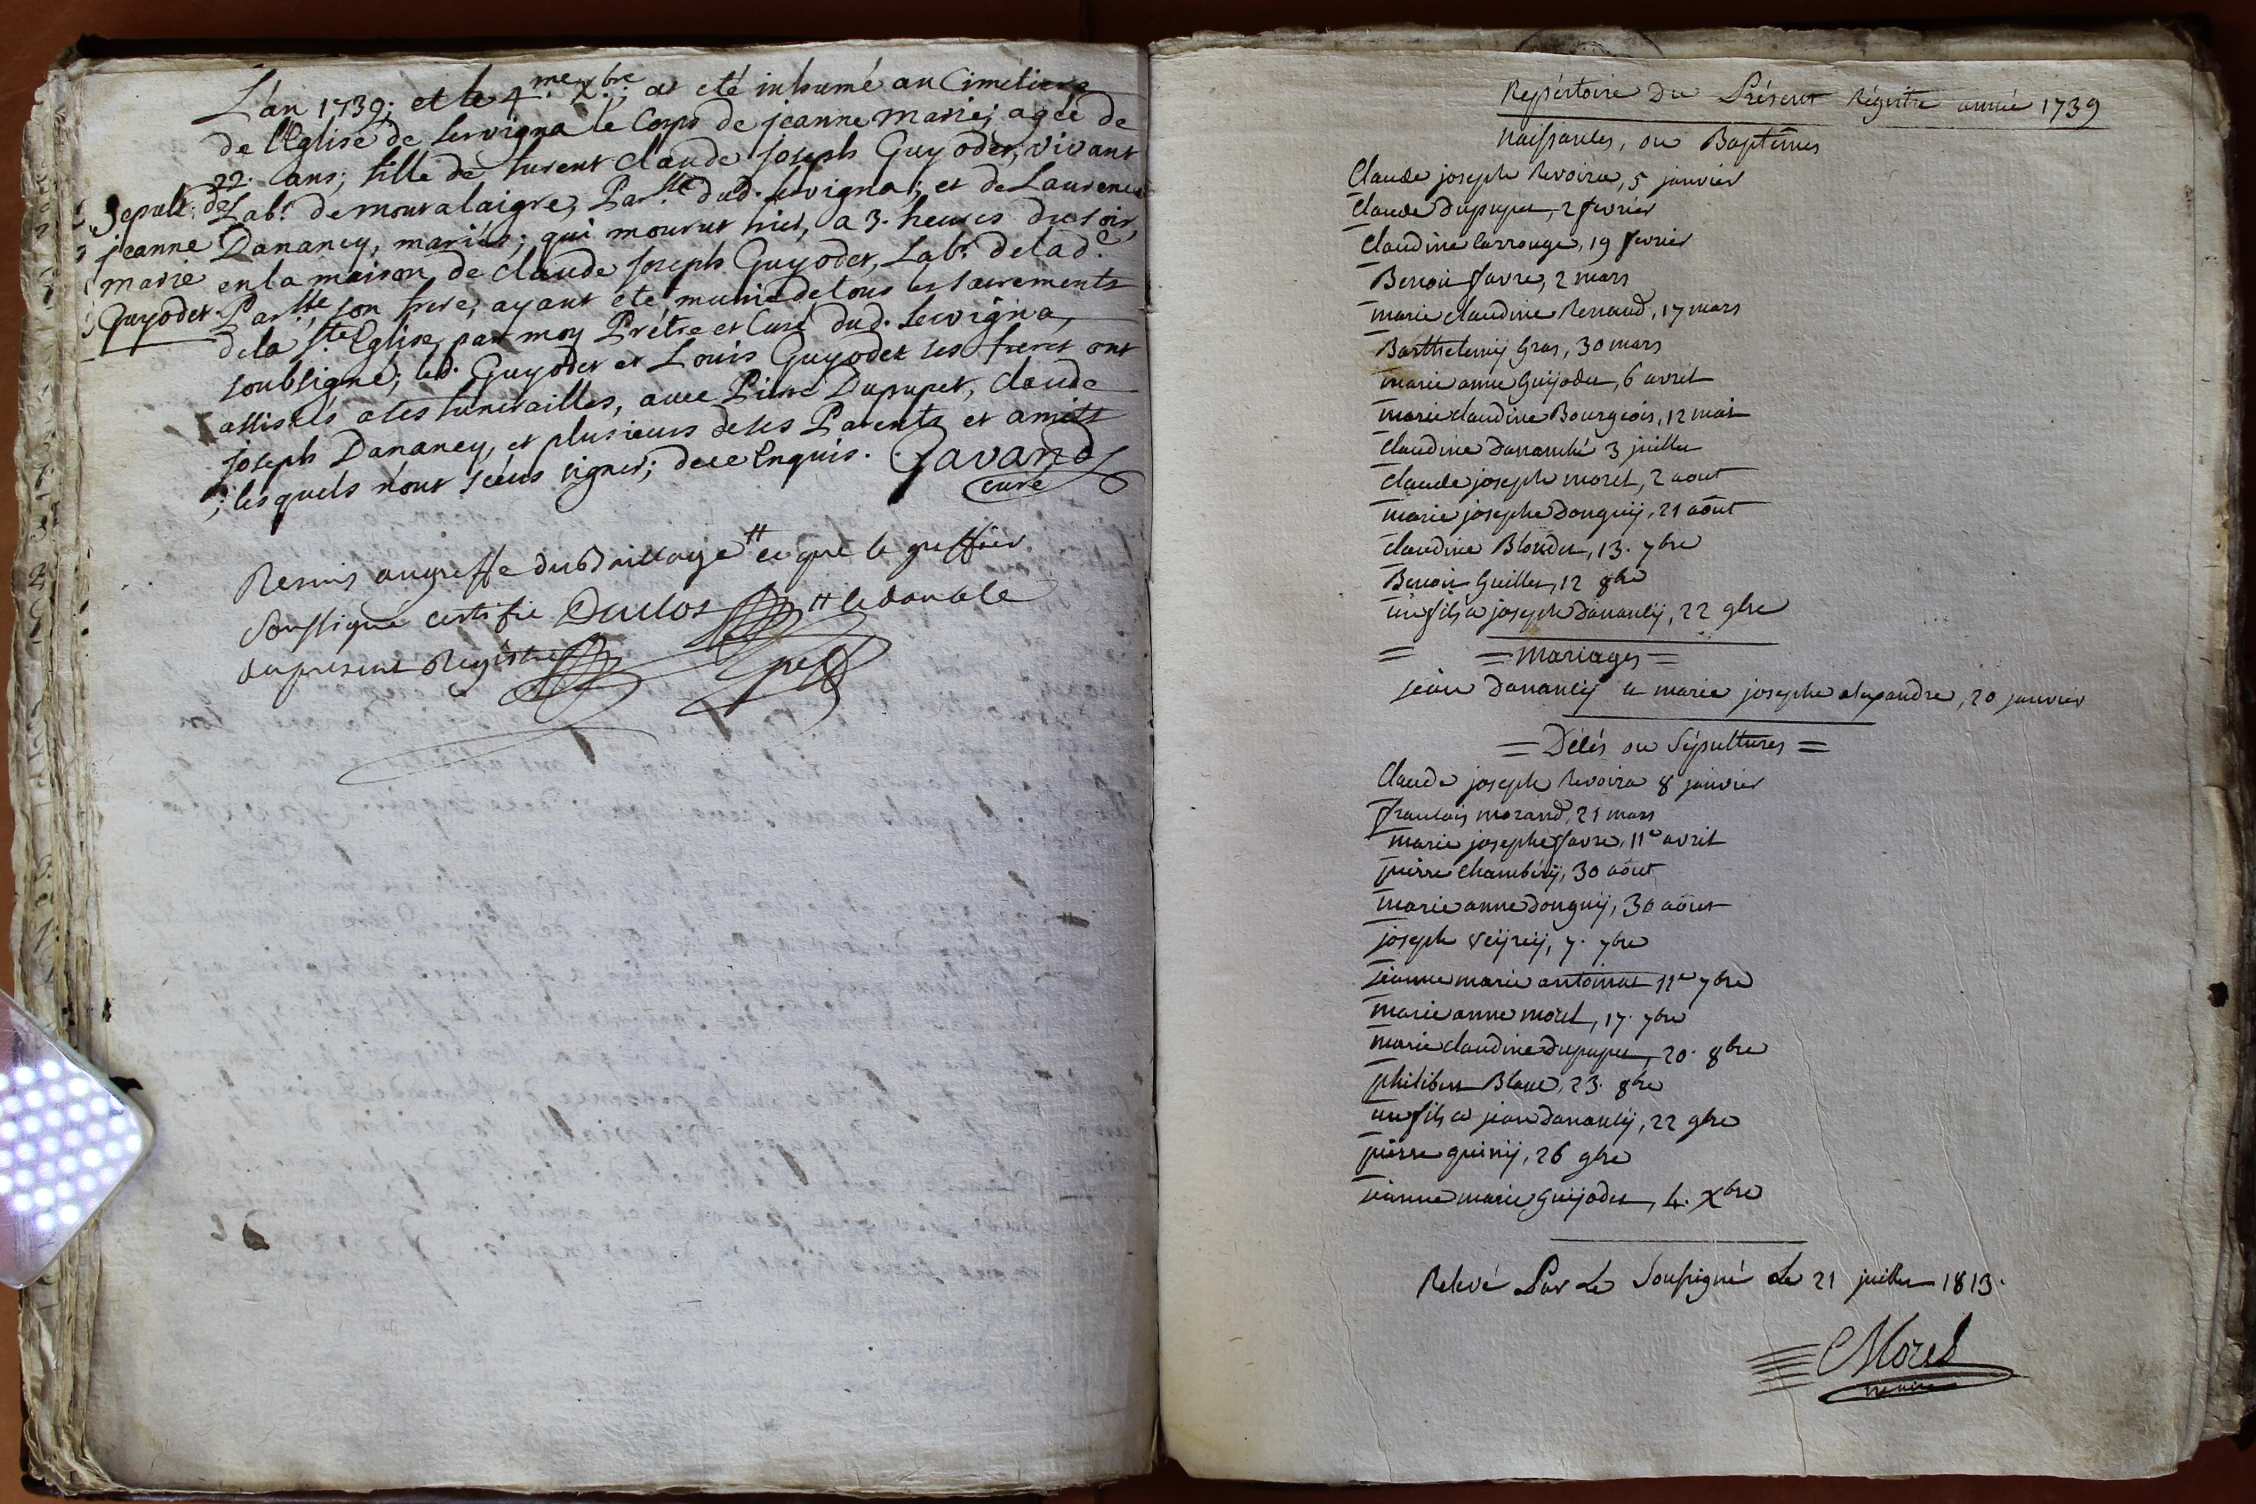 L'an 1739; et le 4.me Xbre; at eté inhumé au Cimetiere
de l'Eglise de Servigna le Corps de jeanne marie; agée de
22. ans; fille de furent Claude joseph Guyodet, vivant
Lab.r de montalaigre, Par.sse dud. Servigna; et de Laurence
Danancy, mariés; qui mourut hier, a 3. heures du soir,
en la maison de Claude joseph Guyodet, Lab.r de lad.e
Par.sse, son frere, ayant eté munie de tous les sacrements
de la s.te Eglise, par moy Prêtre et Curé dud. Servigna,
soubsigné; led. Guyodet et Louis Guyodet ses freres ont
assistés a ses funerailles, avec Pierre Dupuget, Claude
joseph Danancy, et plusieurs de ses Parents et amits
; lesquels n'ont sceus signer; de ce Enquis. Gavand
curé
Sepult: de
jeanne
marie
Guyodet
Remis au greffe du Bailliage # ce que le greffier
soussigné certifie Duclos # le double
du present Registre
Repértoire Du Présent Régistre année 1739
Naissances, ou Baptêmes
Claude joseph Revoire, 5 janvier
Claude dupuget, 2 fevrier
Claudine Carrouge, 19 fevrier
Benoit favre, 2 mars
marie claudine Renaud, 17 mars
Barthelemij Gras, 30 mars
marie anne Guijodet, 6 avril
marie claudine Bourgeois, 12 mai
Claudine Danancé 3 juillet
Claude joseph morel, 2 aout
marie josephe Donguij, 21 août
claudine Blondet, 13. 7bre
Benoit Guillet, 12 8bre
un fils a joseph Danancij, 22 9bre
= = Mariages =
jean Danancij et marie josephe alexandre, 20 janvier
= Décès ou Sépultures =
Claude joseph Revoire 8 janvier
françois morand, 21 mars
marie josephe favre, 11e avril
pierre Chambérij, 30 août
marie anne Donguij, 30 août
joseph Veijreij, 7. 7bre
jeanne marie antoinat 11e 7bre
marie anne morel, 17. 7bre
marie claudine Dupuget, 20. 8bre
philibert Blanc, 23. 8bre
un fils a jean Danancij, 22 9bre
pierre guinij, 26 9bre
jeanne marie Guijodet, 4. Xbre
Relevé Par Le Soussigné le 21 juillet 1813.
Morel
maire